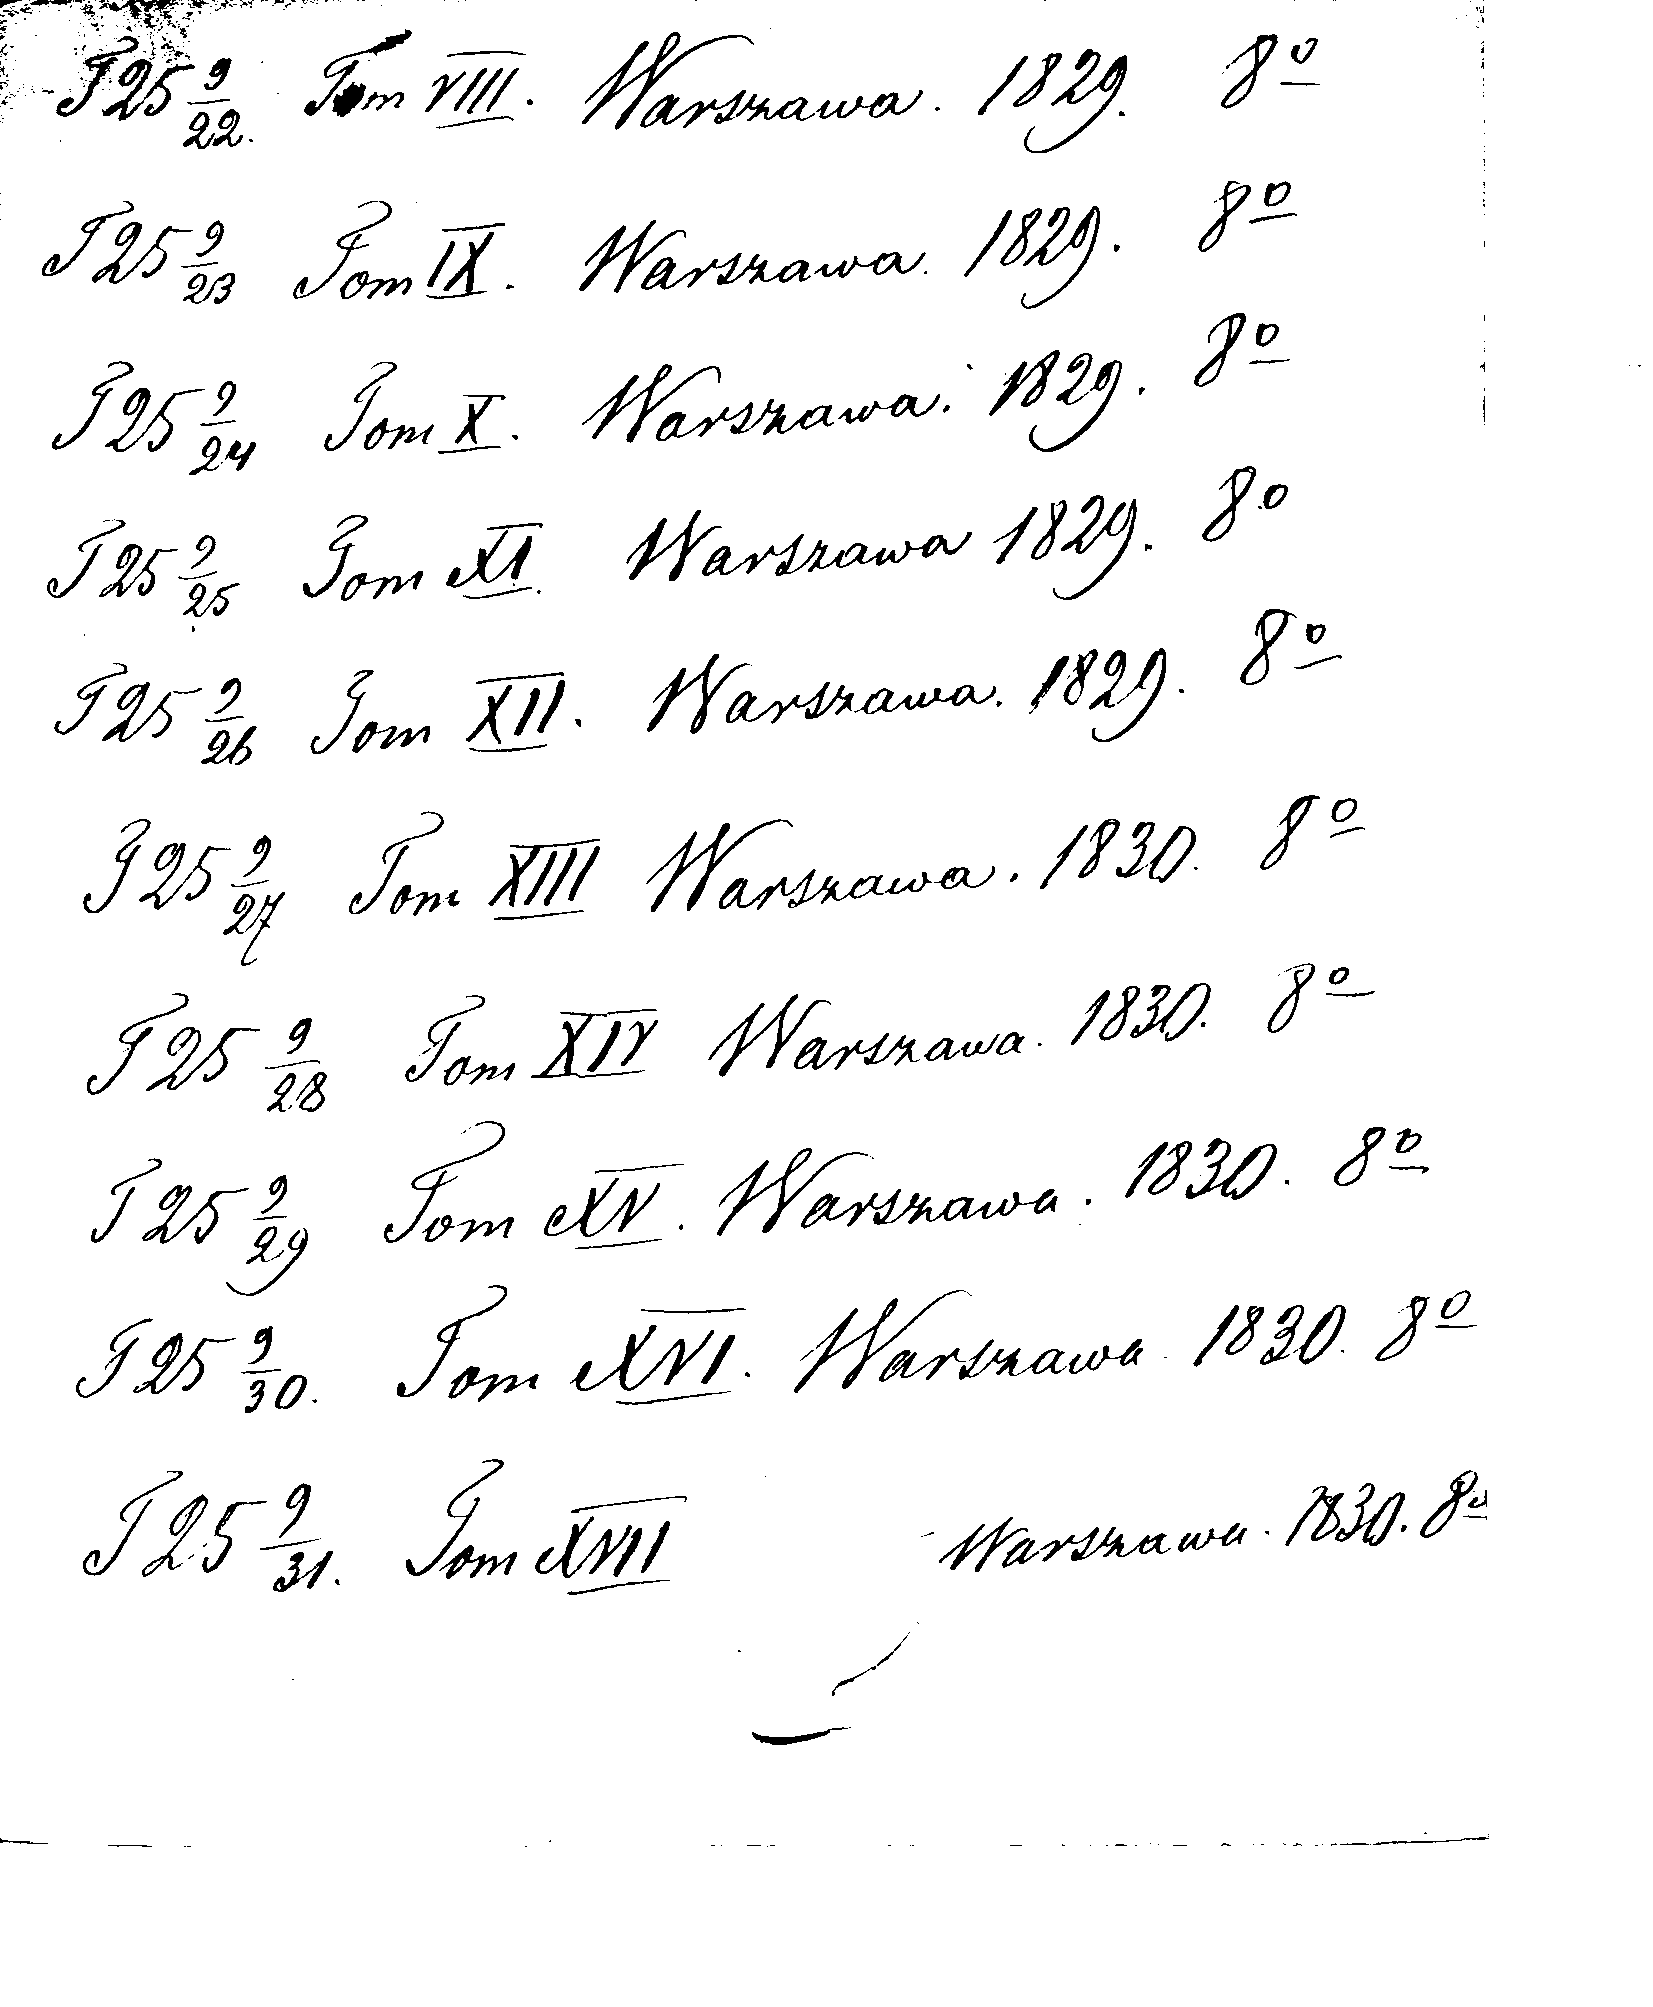 T 25 9/22. Tom VIII. Warszawa. 1829. 8º
T 25 9/23 Tom IX. Warszawa. 1829. 8º
T 25 9/24 Tom X. Warszawa. 1829. 8º
T 25 9/25 Tom XI. Warszawa 1829. 8º
T 25 9/26 Tom XII. Warszawa. 1829. 8º
T 25 9/27 Tom XIII Warszawa. 1830. 8º
T 25 9/28 Tom XIV Warszawa. 1830. 8º
T 25 9/29 Tom XV. Warszawa. 1830. 8º
T 25 9/30. Tom XVI. Warszawa. 1830. 8º
T 25 9/31. Tom XVII Warszawa. 1830. 8º